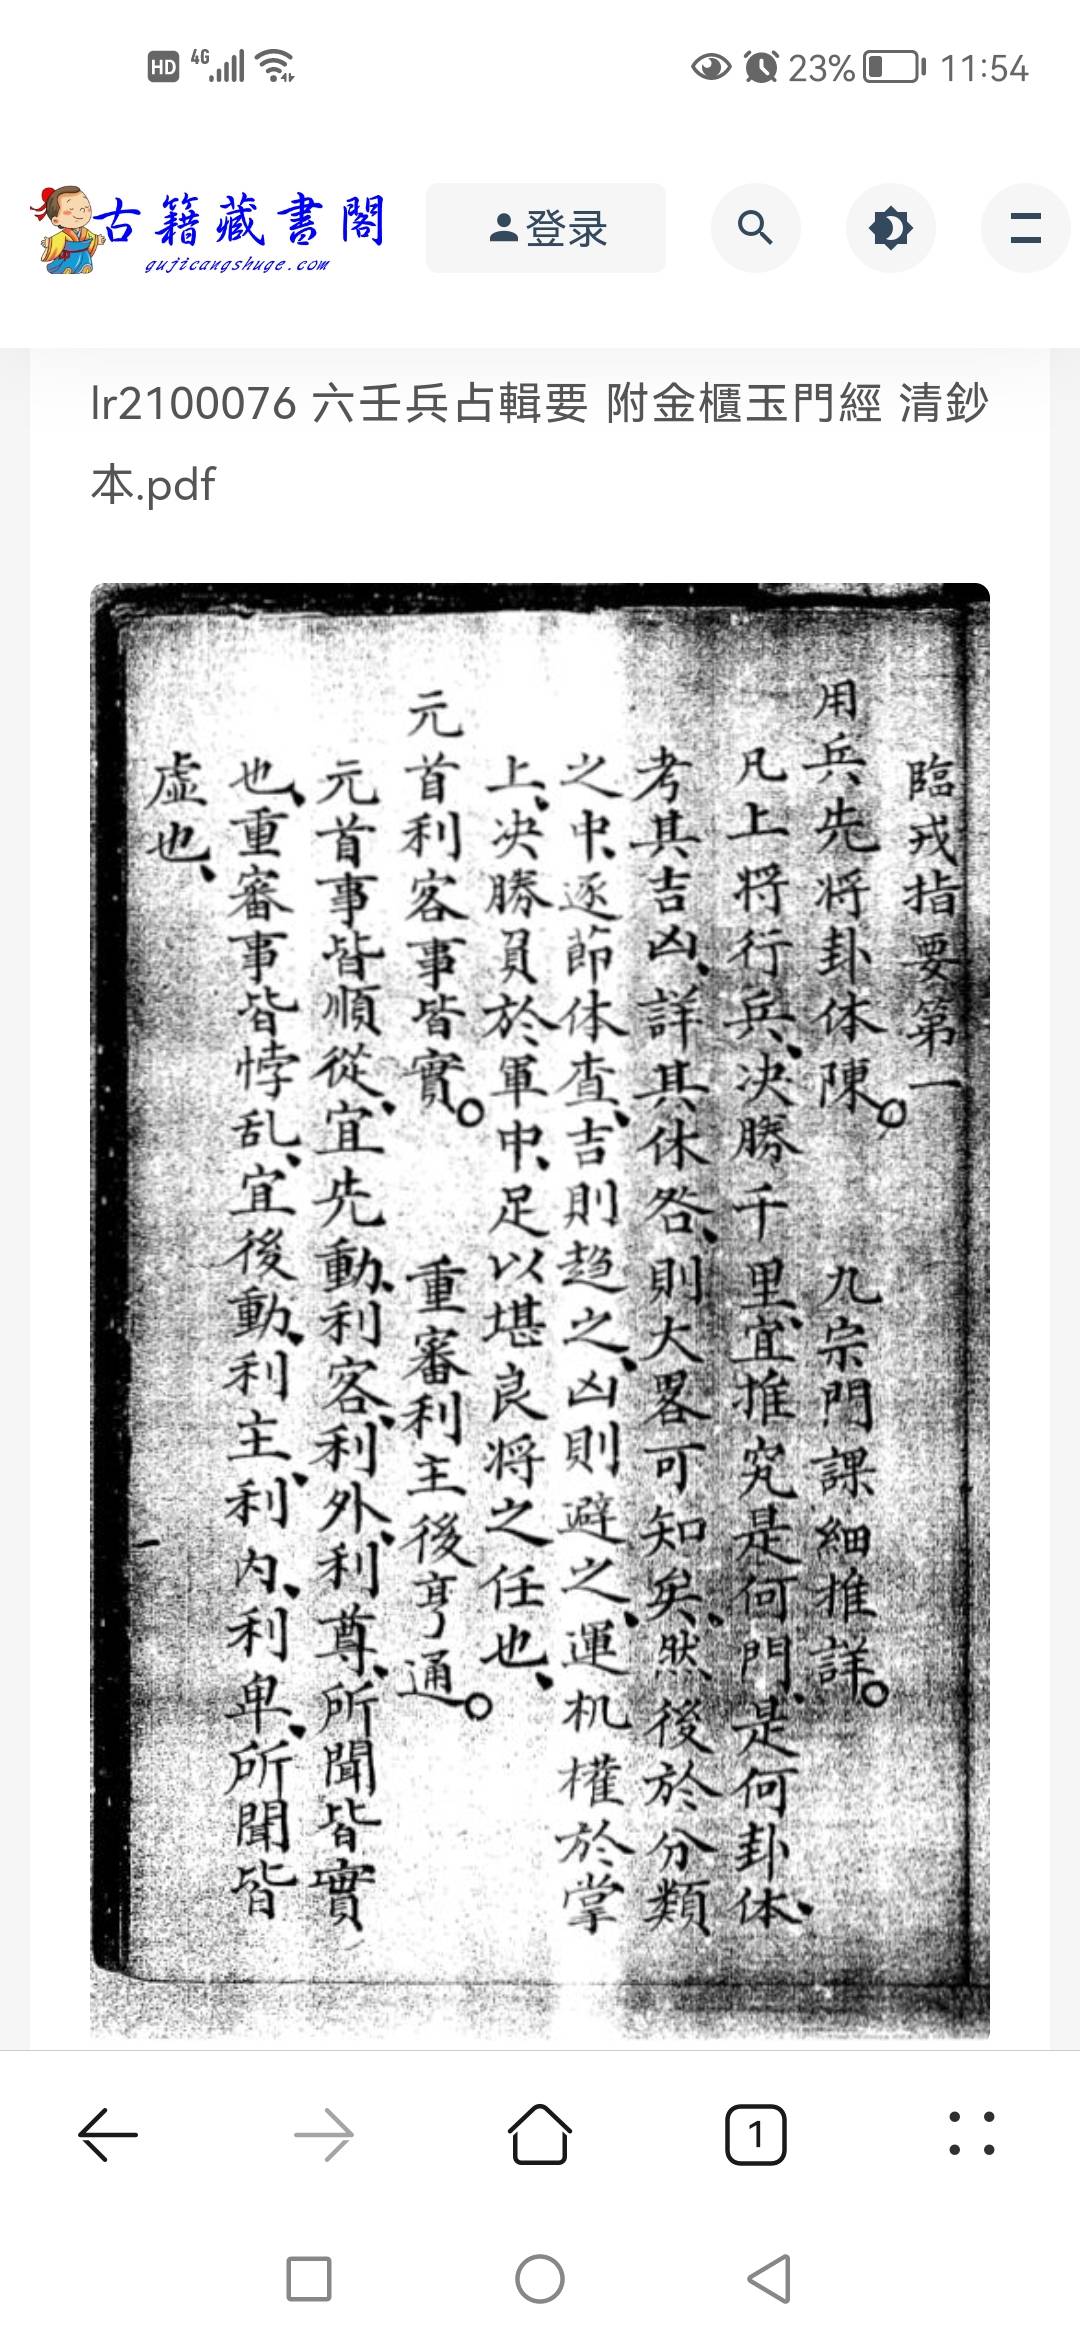 HD 4G 23% 11:54
古籍藏書閣
gujicangshuge.com
登录
lr2100076 六壬兵占輯要 附金櫃玉門經 清鈔
本.pdf
臨戎指要第一
用兵先将卦体陳。 九宗門課細推詳。
凡上將行兵、决勝千里、宜推究是何門、是何卦体、
考其吉凶、詳其休咎、則大畧可知矣、然後於分類
之中、逐節体查、吉則趋之、凶則避之、運机權於掌
上、决勝負於軍中、足以堪良将之任也、
元首利客事皆實。 重審利主後亨通。
元首事皆順從、宜先動、利客、利外、利尊、所聞皆實
也、重審事皆悖乱、宜後動、利主、利内、利卑、所聞皆
虚也、
1